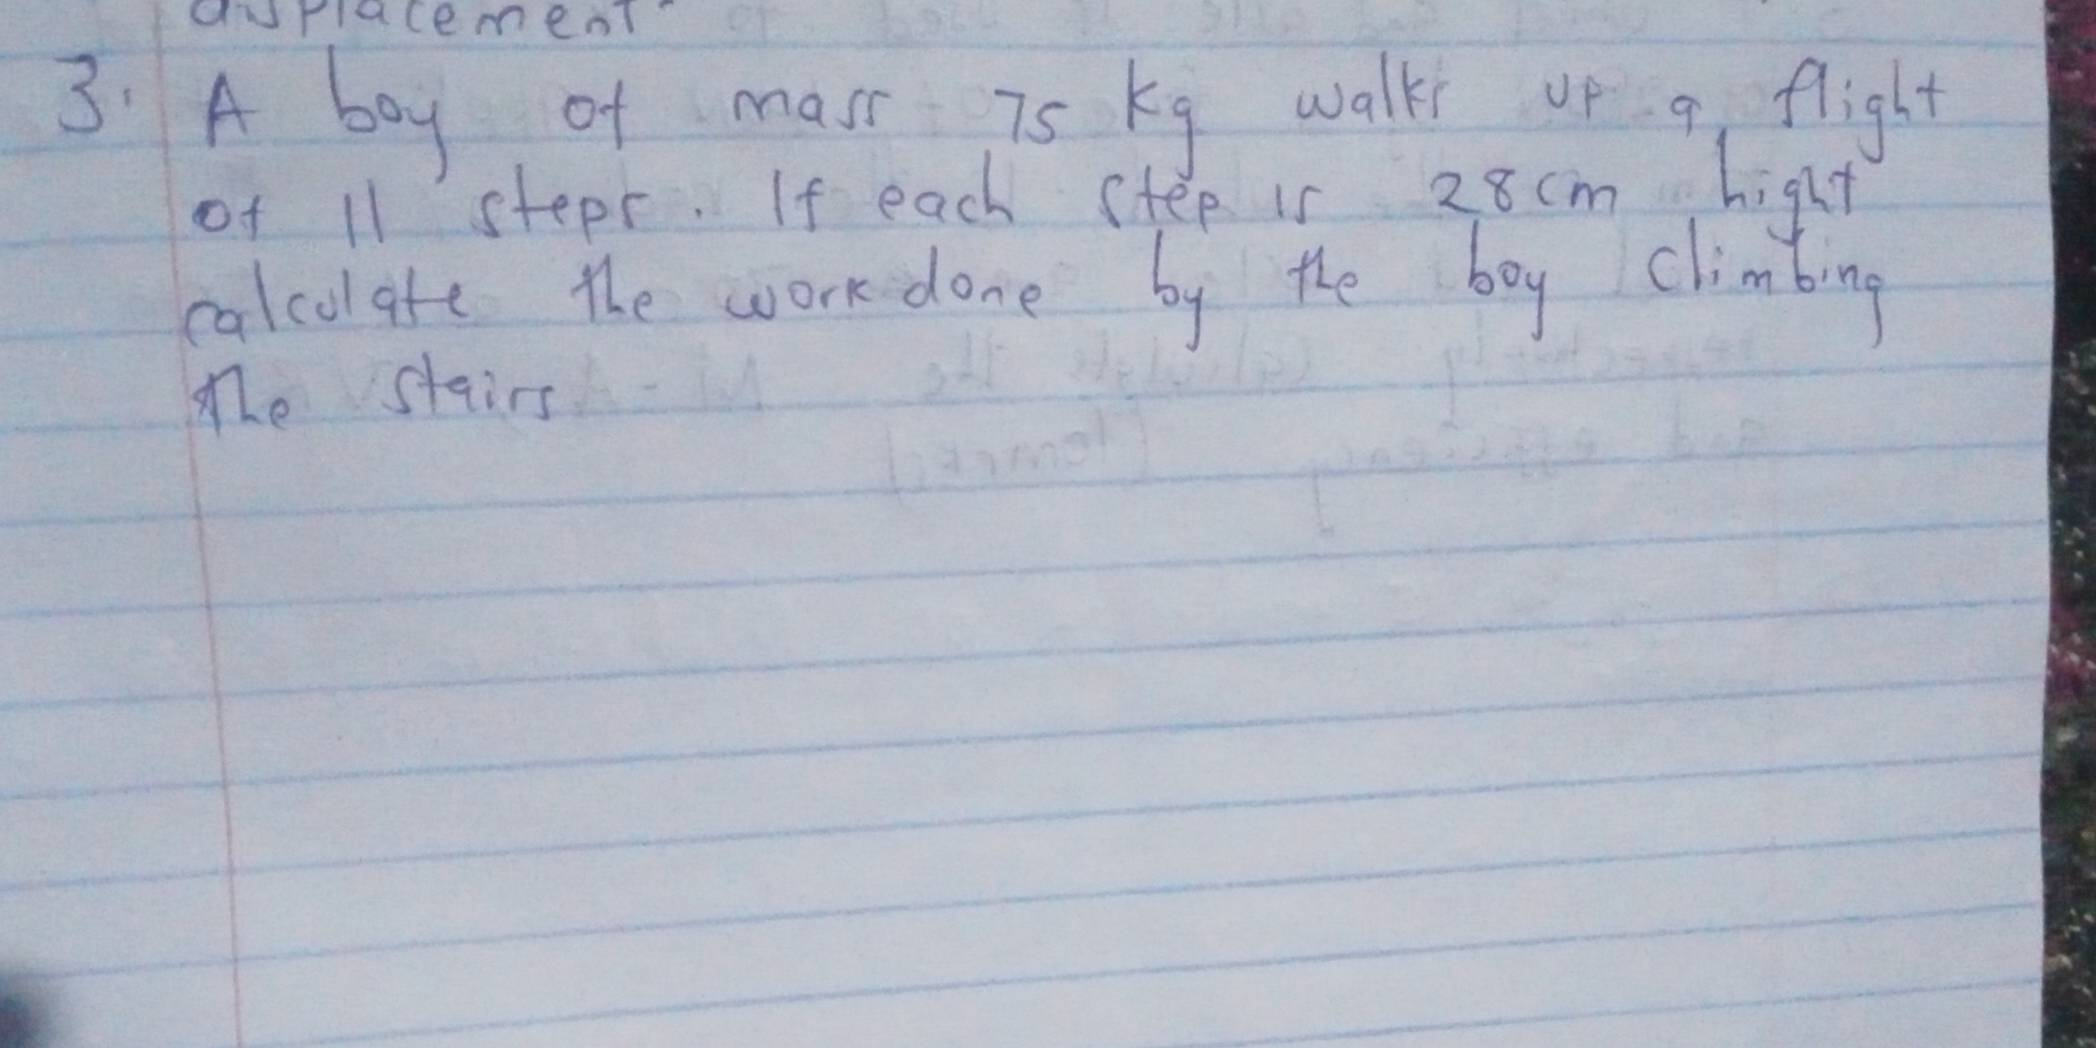 displacement.
3. A boy of mass 75 kg walks up a flight
of 11 steps. If each step is 28cm hight
calculate the work done by the boy climbing
the stairs